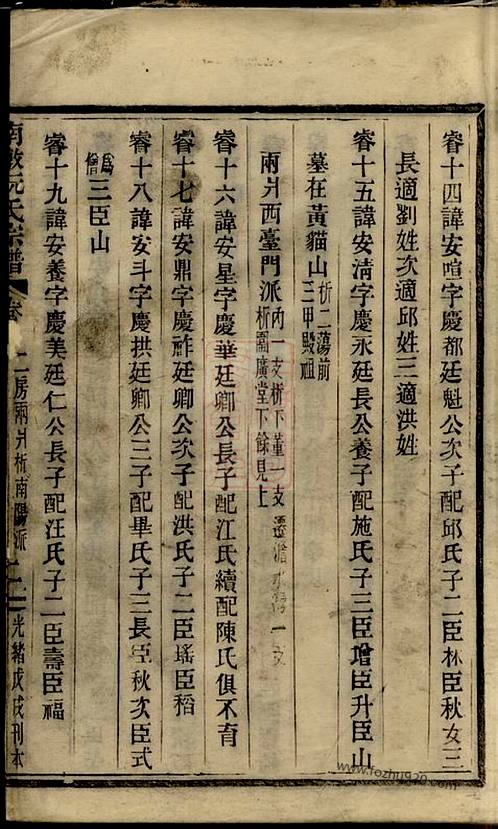 睿十四諱安喧字慶都廷魁公次子配邱氏子二臣林臣秋女三
長適劉姓次適邱姓三適洪姓
睿十五諱安淸字慶永廷長公養子配施氏子三臣增臣升臣山
墓在黃貓山析二蕩前
三甲毀祖
兩爿西臺門派內一支析下董一支
析園廣堂下餘見上
睿十六諱安星字慶華廷卿公長子配江氏續配陳氏俱不育
睿十七諱安鼎字慶祚廷卿公次子配洪氏子二臣瑤臣稻
睿十八諱安斗字慶拱廷卿公三子配畢氏子三長臣秋次臣式
爲僧三臣山
睿十九諱安養字慶美廷仁公長子配汪氏子二臣壽臣福
南 阮氏宗譜 卷 二房兩爿析南陽派 光緒戊戌刊本
www.fozhu920.com